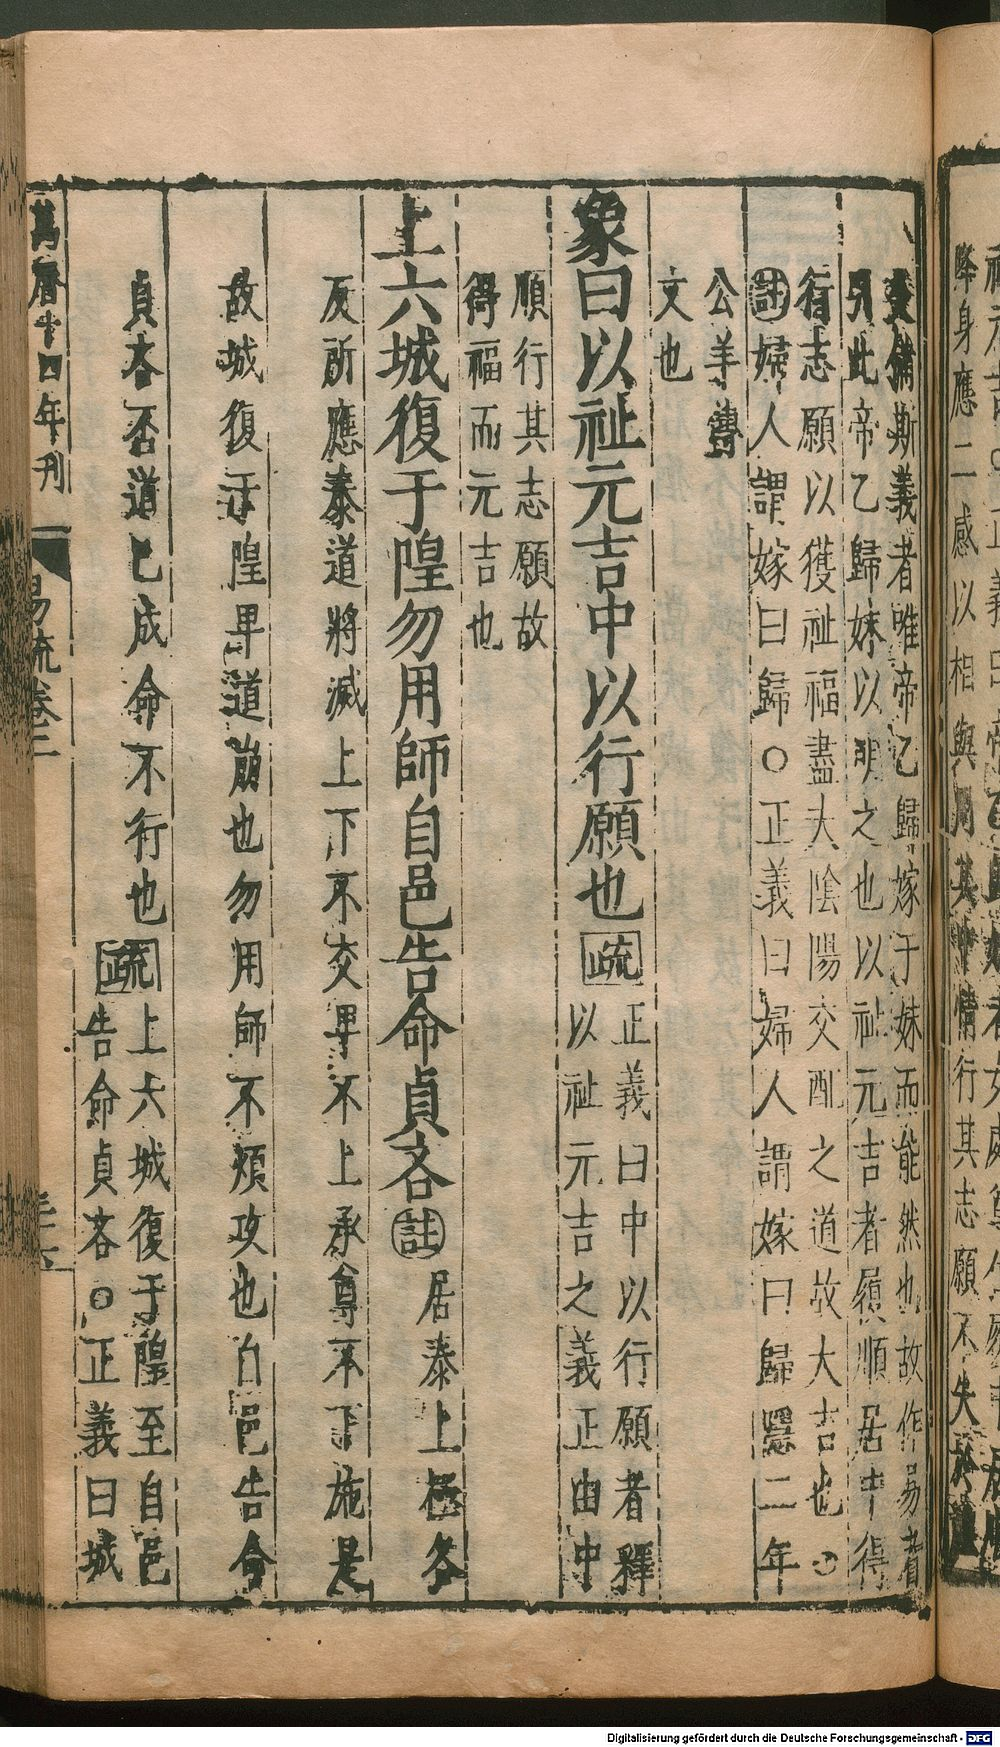 降身應二感以相與用其中情行其志願不失於禮
爻備斯義者唯帝乙歸嫁于妹而能然也故作易者
引此帝乙歸妹以明之也以祉元吉者履順居中得
行志願以獲祉福盡夫陰陽交配之道故大吉也○
註婦人謂嫁曰歸○正義曰婦人謂嫁曰歸隱二年
公羊傳
文也
象曰以祉元吉中以行願也疏
正義曰中以行願者釋
以祉元吉之義正由中
順行其志願故
得福而元吉也
上六城復于隍勿用師自邑告命貞吝註居泰上極各
反所應泰道將滅上下不交卑不上承尊不下施是
故城復于隍卑道崩也勿用師不煩攻也自邑告命
貞吝否道已成命不行也疏
上六城復于隍至自邑
告命貞吝○正義曰城
萬曆十四年刊
易疏卷二
Digitalisierung gefördert durch die Deutsche Forschungsgemeinschaft - DFG